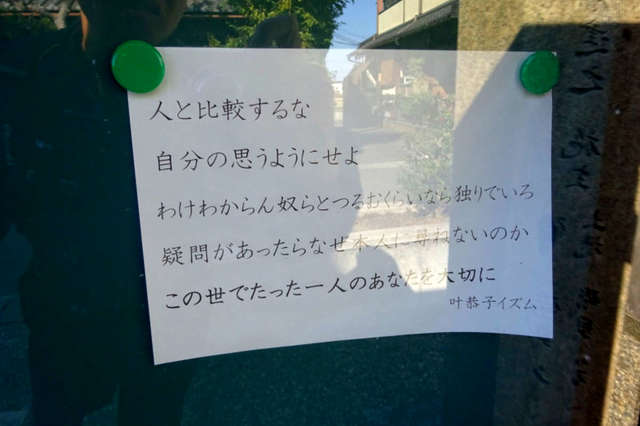 人と比較するな
自分の思うようにせよ
わけわからん奴らとつるむくらいなら独りでいろ
疑問があったらなぜ本人に尋ねないのか
この世でたった一人のあなたを大切に
叶恭子イズム